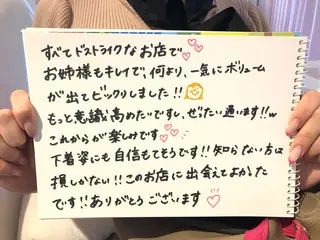 すべてドストライクなお店で
お姉様もキレイで、何より、一気にボリューム
が出てビックリしました!!
もっと意識高めたいですし、ぜったい通います!!w
これからが楽しみです
下着姿にも自信もてそうです!!知らない方は
損しかない!!このお店に出会えてよかった
です!!ありがとうございます